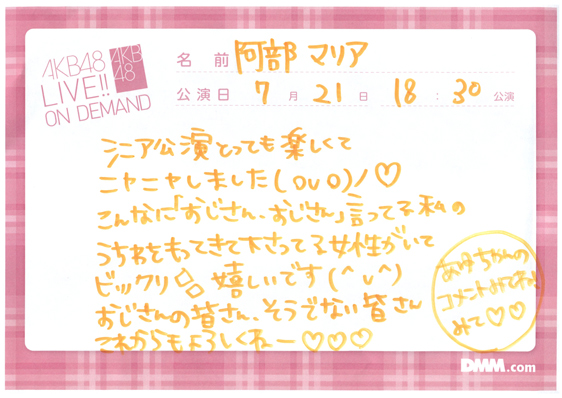 AKB48
LIVE!!
ON DEMAND
AKB
48
名 前 阿部 マリア
公演日 7 月 21 日 18 : 30 公演
シニア公演とっても楽しくて
ニヤニヤしました(ovo)ノ♡
こんなに「おじさん、おじさん」言ってる私の
うちわをもってきて下さってる女性がいて
ビックリ 嬉しいです(^v^)
おじさんの皆さん、そうでない皆さん
これからもよろしくねー♡♡♡
あゆちゃんの
コメント
みて♡♡
DMM.com